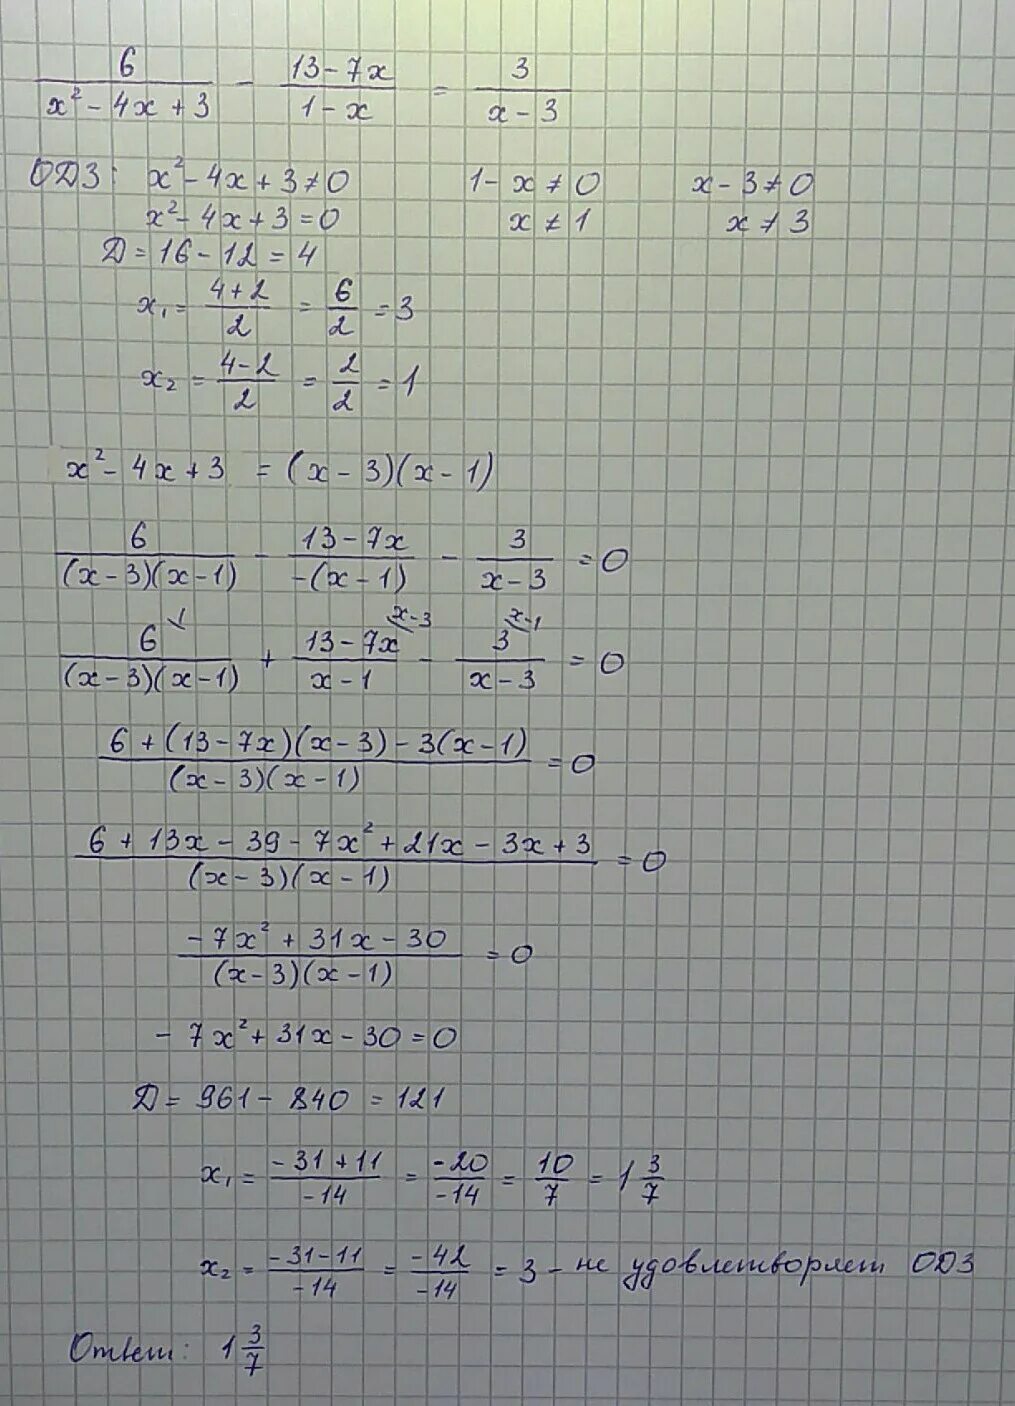 6/(x² - 4x + 3) - (13 - 7x)/(1 - x) = 3/(x - 3)
ОДЗ: x² - 4x + 3 ≠ 0 1 - x ≠ 0 x - 3 ≠ 0
x² - 4x + 3 = 0 x ≠ 1 x ≠ 3
Д = 16 - 12 = 4
x₁ = (4 + 2)/2 = 6/2 = 3
x₂ = (4 - 2)/2 = 2/2 = 1
x² - 4x + 3 = (x - 3)(x - 1)
6/((x - 3)(x - 1)) - (13 - 7x)/(-(x - 1)) - 3/(x - 3) = 0
x - 3 x - 1
6/((x - 3)(x - 1)) + (13 - 7x)/(x - 1) - 3/(x - 3) = 0
(6 + (13 - 7x)(x - 3) - 3(x - 1))/((x - 3)(x - 1)) = 0
(6 + 13x - 39 - 7x² + 21x - 3x + 3)/((x - 3)(x - 1)) = 0
(-7x² + 31x - 30)/((x - 3)(x - 1)) = 0
-7x² + 31x - 30 = 0
Д = 961 - 840 = 121
x₁ = (-31 + 11)/(-14) = -20/-14 = 10/7 = 1 3/7
x₂ = (-31 - 11)/(-14) = -42/-14 = 3 - не удовлетворяет ОДЗ
Ответ: 1 3/7